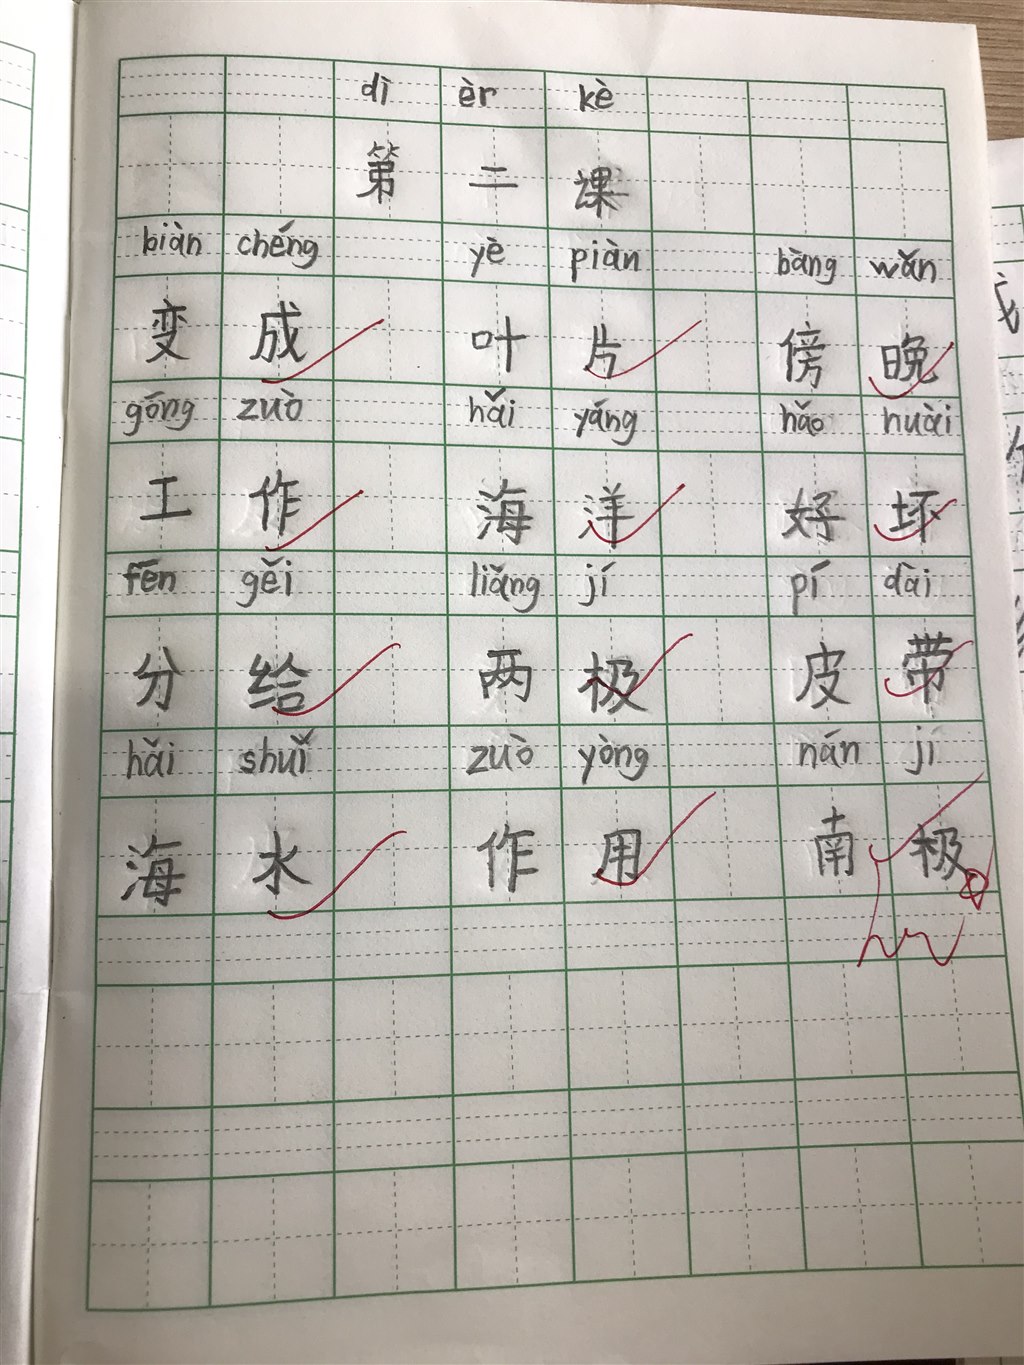 dì èr kè
第 二 课
biàn chéng yè piàn bàng wǎn
变 成 叶 片 傍 晚
gōng zuò hǎi yáng hǎo huài
工 作 海 洋 好 坏
fēn gěi liǎng jí pí dài
分 给 两 极 皮 带
hǎi shuǐ zuò yòng nán jí
海 水 作 用 南 极